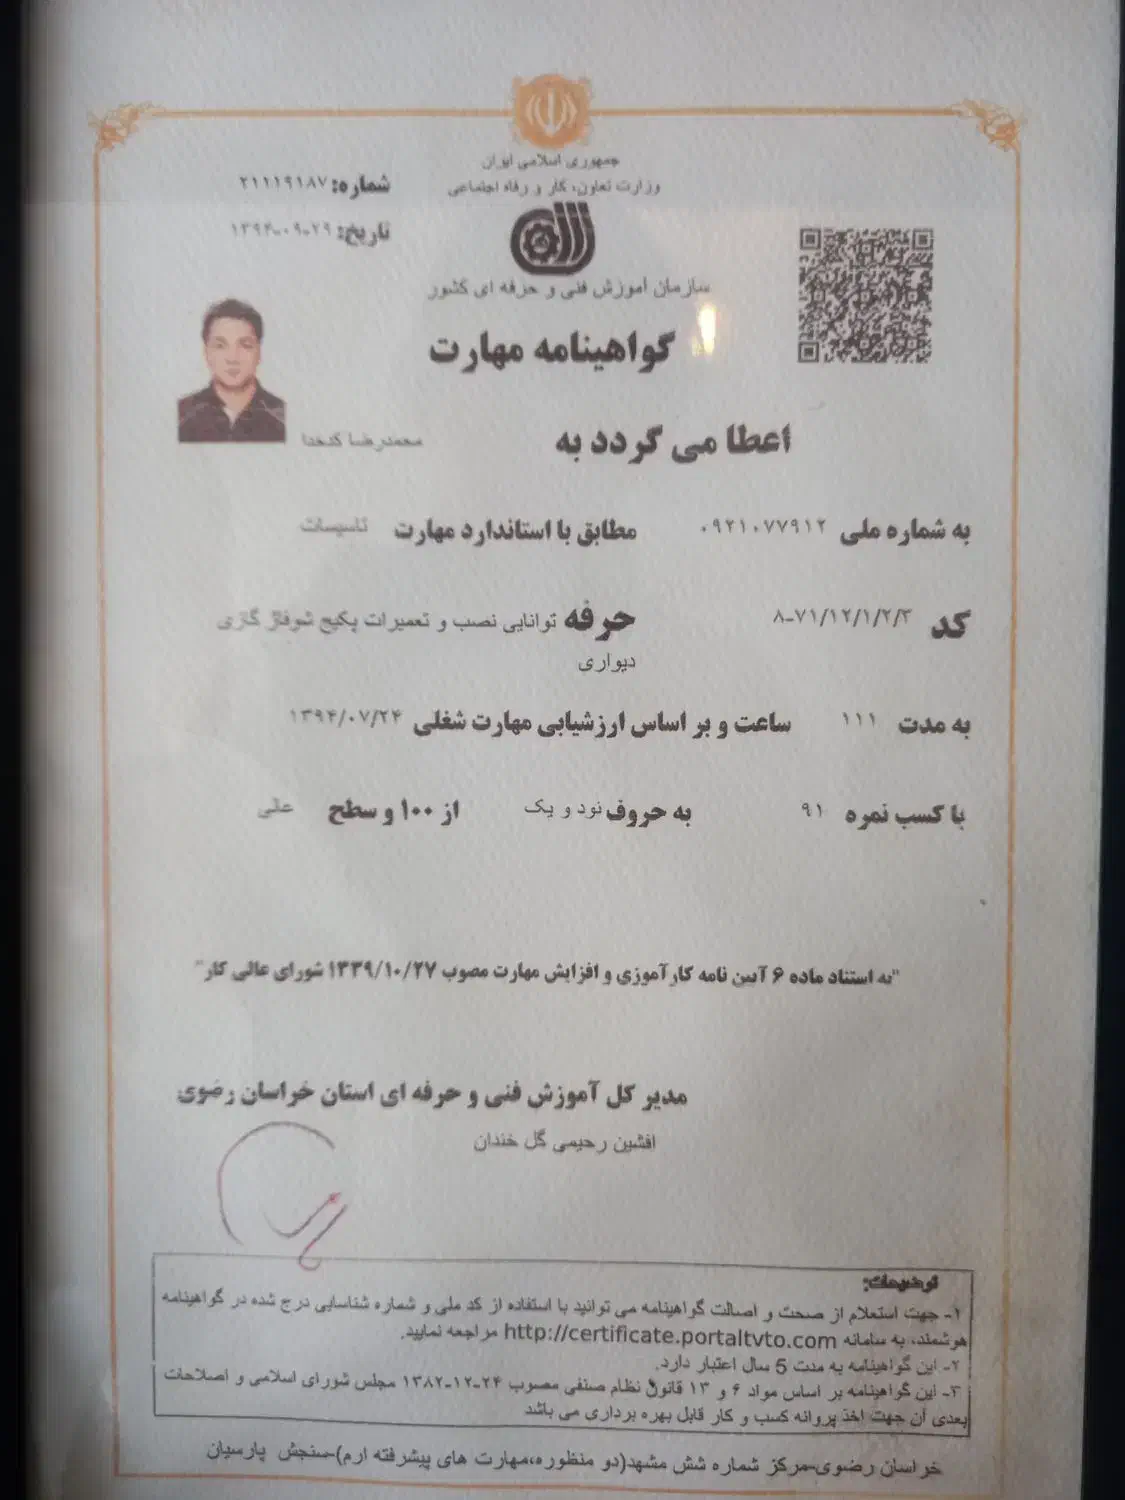 جمهوری اسلامی ایران
وزارت تعاون، کار و رفاه اجتماعی
شماره: ۲۱۱۱۹۱۸۷
تاریخ: ۱۳۹۴-۰۹-۲۹
سازمان آموزش فنی و حرفه ای کشور
گواهینامه مهارت
اعطا می گردد به محمدرضا کدخدا
به شماره ملی ۰۹۲۱۰۷۷۹۱۲ مطابق با استاندارد مهارت تاسیسات
کد ۸-۷۱/۱۲/۱/۲/۳ حرفه توانایی نصب و تعمیرات پکیج شوفاژ گازی
دیواری
به مدت ۱۱۱ ساعت و بر اساس ارزشیابی مهارت شغلی ۱۳۹۴/۰۷/۲۴
با کسب نمره ۹۱ به حروف نود و یک از ۱۰۰ و سطح عالی
"به استناد ماده ۶ آیین نامه کارآموزی و افزایش مهارت مصوب ۱۳۳۹/۱۰/۲۷ شورای عالی کار"
مدیر کل آموزش فنی و حرفه ای استان خراسان رضوی
افشین رحیمی گل خندان
توضیحات:
۱- جهت استعلام از صحت و اصالت گواهینامه می توانید با استفاده از کد ملی و شماره شناسایی درج شده در گواهینامه
هوشمند، به سامانه http://certificate.portaltvto.com مراجعه نمایید.
۲- این گواهینامه به مدت 5 سال اعتبار دارد.
۳- این گواهینامه بر اساس مواد ۶ و ۱۳ قانون نظام صنفی مصوب ۲۴-۱۲-۱۳۸۲ مجلس شورای اسلامی و اصلاحات
بعدی آن جهت اخذ پروانه کسب و کار قابل بهره برداری می باشد
خراسان رضوی-مرکز شماره شش مشهد(دو منظوره،مهارت های پیشرفته ارم)-سنجش پارسیان